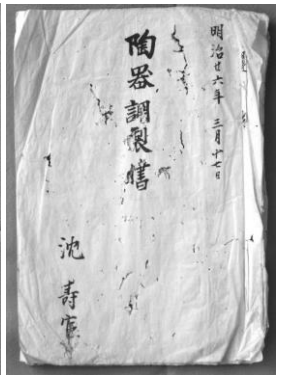 明治廿六年 三月十七日
陶器調製簿
沈壽官